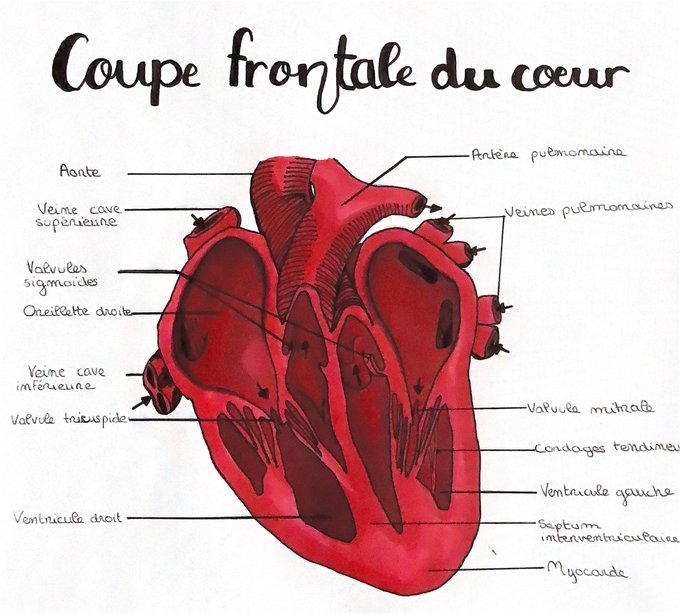 Coupe frontale du cœur
Aorte
Veine cave
supérieure
Valvules
sigmoïdes
Oreillette droite
Veine cave
inférieure
Valvule tricuspide
Ventricule droit
Artère pulmonaire
Veines pulmonaires
Valvule mitrale
Cordages tendineu
Ventricule gauche
Septum
interventriculaire
Myocarde